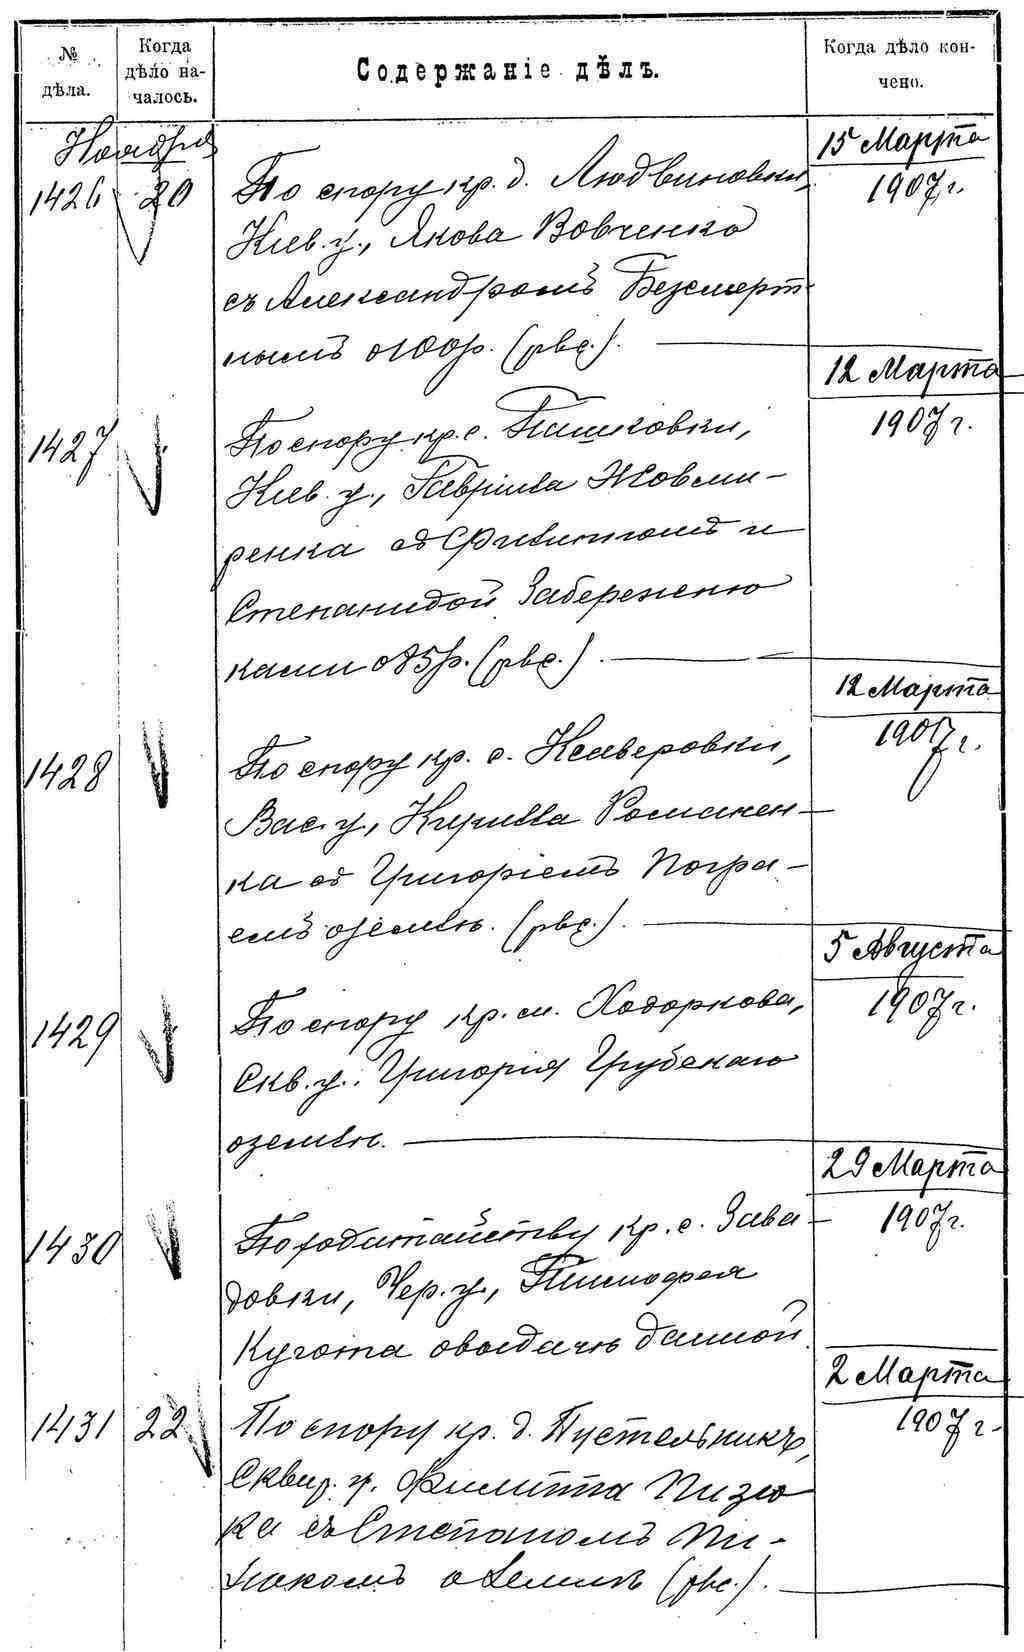 № дѣла.
Когда дѣло на-
чалось.
Содержаніе дѣлъ.
Когда дѣло кон-
чено.
Ноября
1426 20 По спору кр. д. Людвиновки,
Кіев. у., Якова Вовченка
съ Александромъ Безсмерт-
нымъ о 100 р. (рвс.).
15 Марта
1907 г.
1427 По спору кр. с. Пашковки,
Кіев. у., Гавріила Жовми-
ренка съ Филиппомъ и
Степанидой Забереженю
ками о 85 р. (рвс.).
12 Марта
1907 г.
1428 По спору кр. с. Ксаверовки,
Вас. у., Кирилла Романен-
ка съ Григоріемъ Погра-
емъ о землѣ. (рвс.).
12 Марта
1907 г.
1429 По спору кр. м. Ходоркова,
Скв. у. Григорія Грубскаго
о землѣ.
5 Августа
1907 г.
1430 По ходатайству кр. с. Зава-
довки, Чер. у., Тимофея
о выдачѣ данной
29 Марта
1907 г.
1431 22 По спору кр. д. Пустельникъ,
Сквир. у. Филиппа Пизю
ка съ Степаномъ
о землѣ (рвс.).
2 Марта
1907 г.